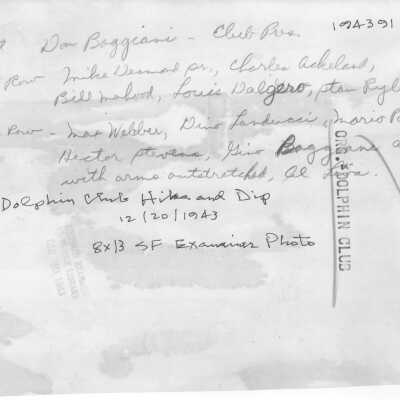 Don Baggiani - Club Pres.
194391
Row Mike Desmond sr., Charles Ackeland,
Bill Mahood, Louis Dalgero, Stan
Row - Max Webber, Dino Landucci, Mario
Hector Stevens, Gino Baggiani
with arms outstretched, Al
Dolphin Club Hike and Dip
12/20/1943
8x13 SF Examiner Photo
ORG. DOLPHIN CLUB